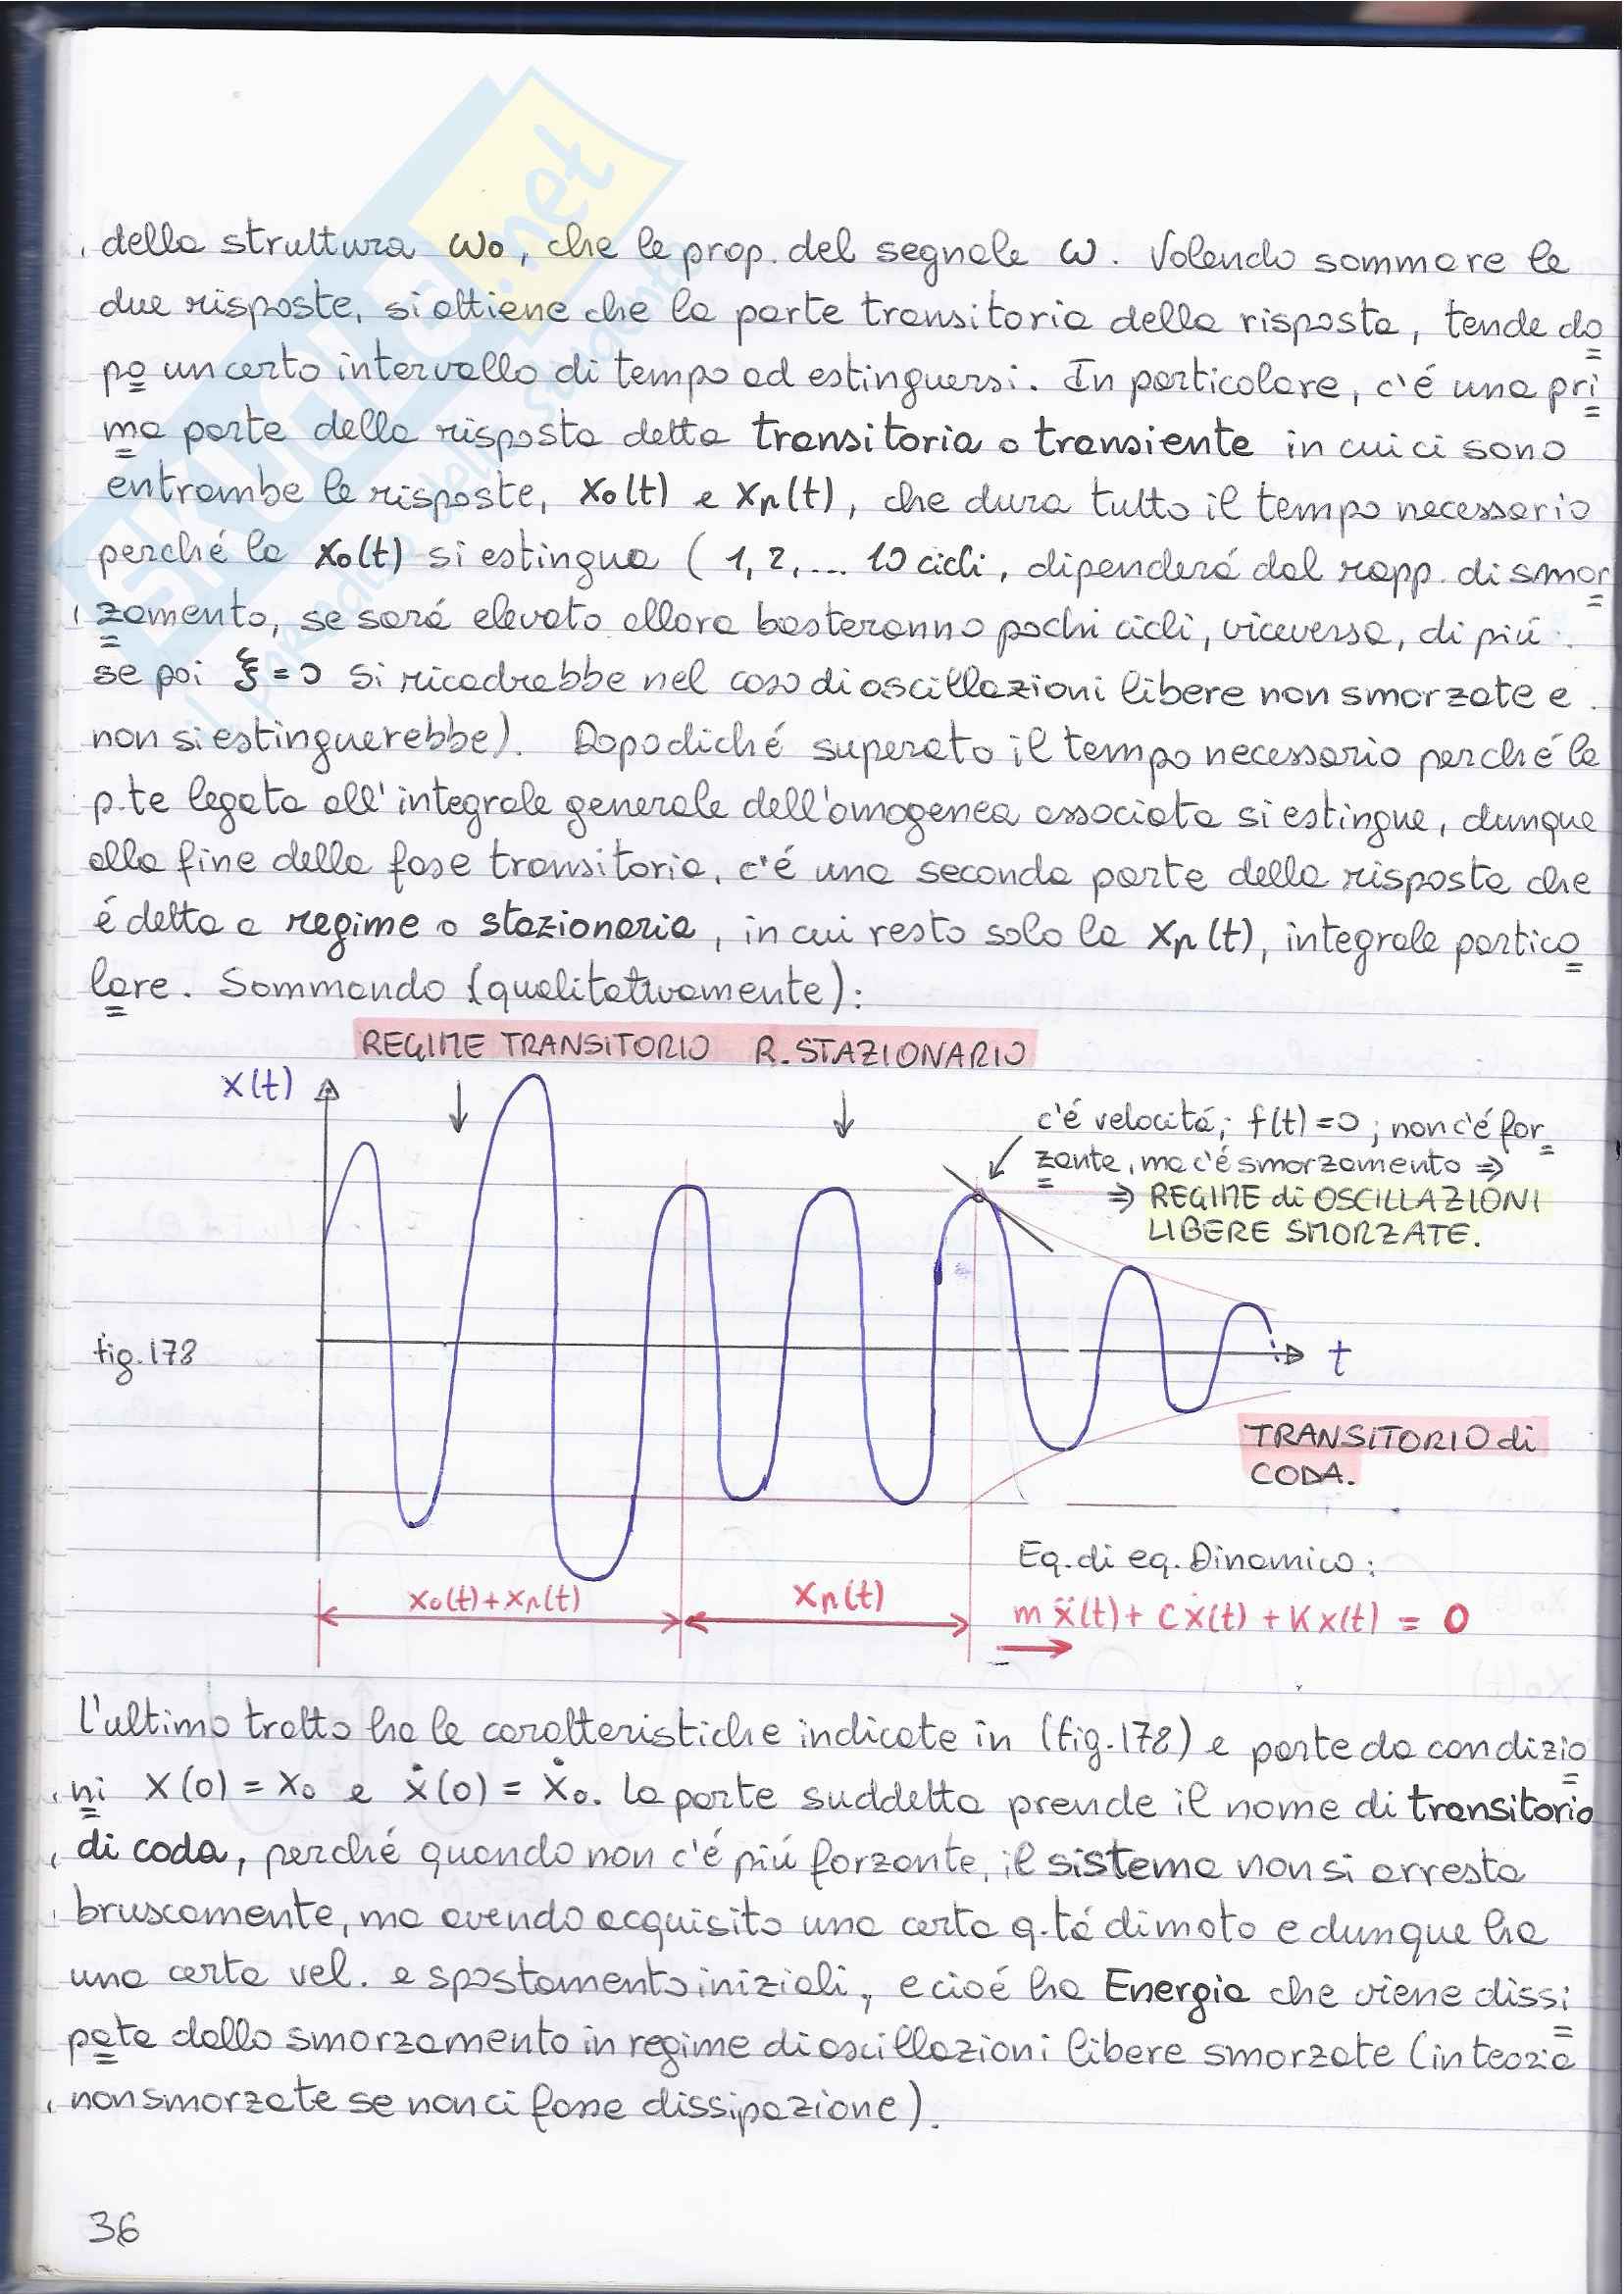 della struttura ω₀, che le prop. del segnale ω. Volendo sommare le
due risposte, si ottiene che la parte transitoria della risposta, tende do
po un certo intervallo di tempo ad estinguersi. In particolare, c'é una pri
ma parte della risposta detta transitoria o transiente in cui ci sono
entrambe le risposte, x₀(t) e xₚ(t), che dura tutto il tempo necessario
perché la x₀(t) si estingua (1, 2, ... 10 cicli, dipenderá dal rapp. di smor
zamento, se sará elevato allora basteranno pochi cicli, viceversa, di piú.
se poi ξ=0 si ricadrebbe nel caso di oscillazioni libere non smorzate e
non si estinguerebbe). Dopodiché superato il tempo necessario perché la
p.te legata all'integrale generale dell'omogenea associata si estingue, dunque
alla fine della fase transitoria, c'é una seconda parte della risposta che
é detta a regime o stazionaria, in cui resta solo la xₚ(t), integrale partico
lare. Sommando (qualitativamente):
REGIME TRANSITORIO R. STAZIONARIO
x(t)
c'é velocitá; f(t)=0; non c'é for
zante, ma c'é smorzamento ⇒
⇒ REGIME di OSCILLAZIONI
LIBERE SMORZATE.
fig. 178
t
TRANSITORIO di
CODA.
Eq. di eq. Dinamico:
x₀(t)+xₚ(t)
xₚ(t)
mẍ(t)+cẋ(t)+Kx(t) = 0
L'ultimo tratto ha le caratteristiche indicate in (fig. 178) e parte da condizio
ni x(0) = x₀ e ẋ(0) = ẋ₀. La parte suddetta prende il nome di transitorio
di coda, perché quando non c'é piú forzante, il sistema non si arresta
bruscamente, ma avendo acquisito una certa q.tá di moto e dunque ha
una certa vel. e spostamento iniziali, e cioé ha Energia che viene dissi
pata dallo smorzamento in regime di oscillazioni libere smorzate (in teoria
non smorzate se non ci fosse dissipazione).
36
SKUOLA.net